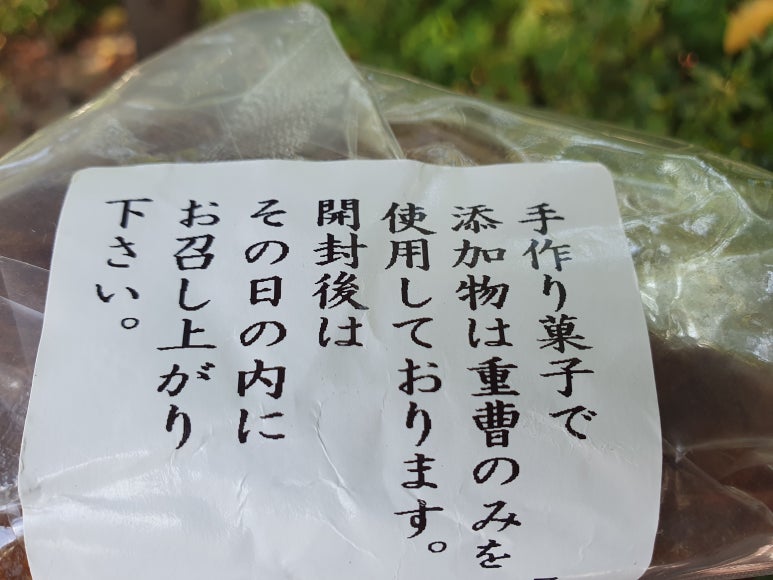 手作り菓子で
添加物は重曹のみを
使用しております。
開封後は
その日の内に
お召し上がり
下さい。